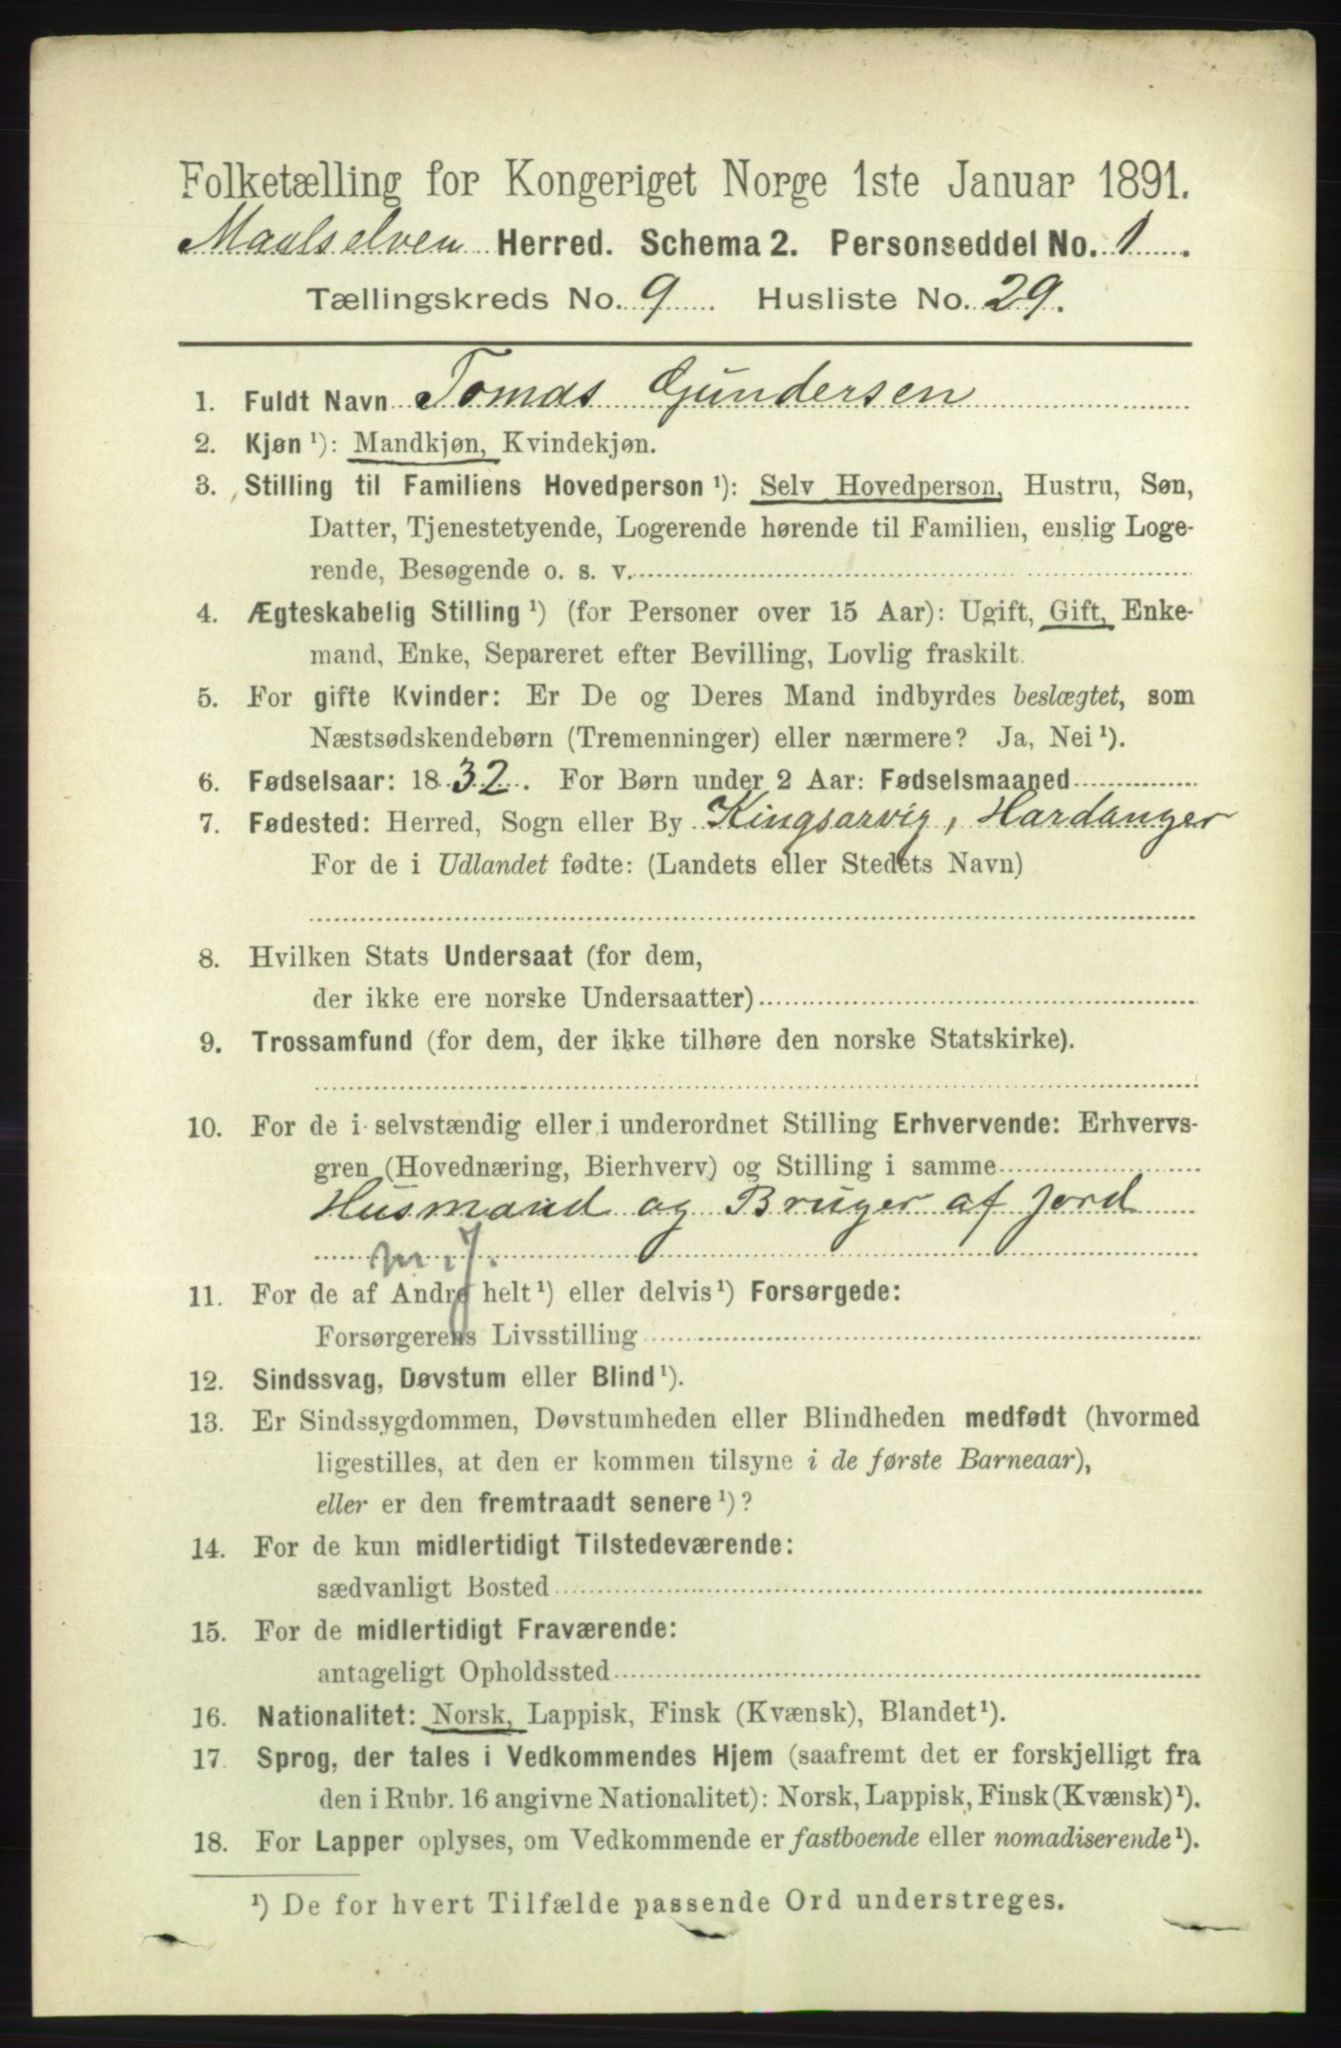 Folketælling for Kongeriget Norge 1ste Januar 1891.
Maalselven Herred. Schema 2. Personseddel No. 1.
Tællingskreds No. 9. Husliste No. 29.
1. Fuldt Navn Tomas Gundersen
2. Kjøn ¹): Mandkjøn, Kvindekjøn.
3. Stilling til Familiens Hovedperson ¹): Selv Hovedperson, Hustru, Søn,
Datter, Tjenestetyende, Logerende hørende til Familien, enslig Loge-
rende, Besøgende o. s. v.
4. Ægteskabelig Stilling ¹) (for Personer over 15 Aar): Ugift, Gift, Enke-
mand, Enke, Separeret efter Bevilling, Lovlig fraskilt.
5. For gifte Kvinder: Er De og Deres Mand indbyrdes beslægtet, som
Næstsødskendebørn (Tremenninger) eller nærmere? Ja, Nei ¹).
6. Fødselsaar: 1832. For Børn under 2 Aar: Fødselsmaaned
7. Fødested: Herred, Sogn eller By Kingsarvig, Hardanger
For de i Udlandet fødte: (Landets eller Stedets Navn)
8. Hvilken Stats Undersaat (for dem,
der ikke ere norske Undersaatter)
9. Trossamfund (for dem, der ikke tilhøre den norske Statskirke).
10. For de i selvstændig eller i underordnet Stilling Erhvervende: Erhvervs-
gren (Hovednæring, Bierhverv) og Stilling i samme
Husmand og Bruger af Jord
m. j.
11. For de af Andre helt ¹) eller delvis ¹) Forsørgede:
Forsørgerens Livsstilling
12. Sindssvag, Døvstum eller Blind ¹).
13. Er Sindssygdommen, Døvstumheden eller Blindheden medfødt (hvormed
ligestilles, at den er kommen tilsyne i de første Barneaar),
eller er den fremtraadt senere ¹)?
14. For de kun midlertidigt Tilstedeværende:
sædvanligt Bosted
15. For de midlertidigt Fraværende:
antageligt Opholdssted
16. Nationalitet: Norsk, Lappisk, Finsk (Kvænsk), Blandet ¹).
17. Sprog, der tales i Vedkommendes Hjem (saafremt det er forskjelligt fra
den i Rubr. 16 angivne Nationalitet): Norsk, Lappisk, Finsk (Kvænsk) ¹).
18. For Lapper oplyses, om Vedkommende er fastboende eller nomadiserende ¹).
¹) De for hvert Tilfælde passende Ord understreges.